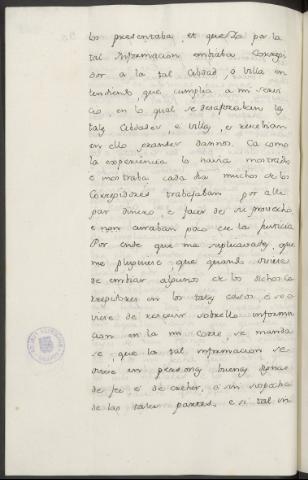 los presentaba, et que Yo por la
tal Informacion embiaba Corregi-
dor a la tal Cibdad, o Villa en-
tendiendo, que cumplia a mi servi-
cio, en lo qual se desaforaban las
tales Cibdades, e Villas, e recebian
en ello grandes dannos. Ca como
la experiencia lo havia mostrado
e mostraba cada dia muchos de los
Corregidores trabajaban por alle-
gar dinero, e facer de su provecho
e non curaban poco de la justicia
Por ende que me suplicavades, que
me plugiese, que quando oviese
de embiar algunos de los dichos Co-
rregidores en los tales casos, e so o-
viere de rescivir sobrello informa-
cion en la mi corte, se manda-
se, que la tal informacion se
oviere en personas buenas dignas
de fe e de creher, e sin sospecha
de las tales partes, e si tal in